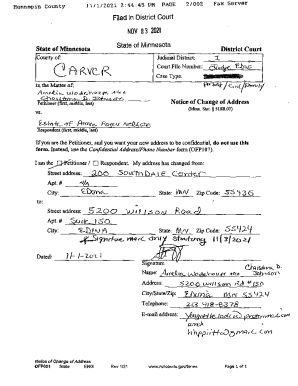 Hennepin County 11/1/2021 2:44:45 PM PAGE 2/002 Fax Server
Filed in District Court
NOV 03 2021
State of Minnesota
State of Minnesota District Court
County of: Judicial District: I
CARVER Court File Number:
Case Type:
In the Matter of:
Petitioner (first, middle, last) Notice of Change of Address
vs. (Minn. Stat. § 518B.01)
Estate of Prince Rogers Nelson
Respondent (first, middle, last)
If you are the Petitioner, and you want your new address to be confidential, do not use this
form. Instead, use the Confidential Address/Phone Number form (OFP107).
I am the Petitioner / Respondent. My address has changed from:
Street address: 200 SouthDale Center
Apt. #
City: Edina State: MN Zip Code: 55435
to:
Street address: 5200 Willson Road
Apt. # Suite 150
City: EDINA State: MN Zip Code: 55424
* Signature mail only starting 11/3/2021
Dated: 11-1-2021
Signature:
Name:
Address: 5200 Willson Rd #150
City/State/Zip: Edina MN 55424
Telephone: 213 418-8378
E-mail address:
and
Notice of Change of Address
OFP801 State ENG Rev 1/21 www.mncourts.gov/forms Page 1 of 1